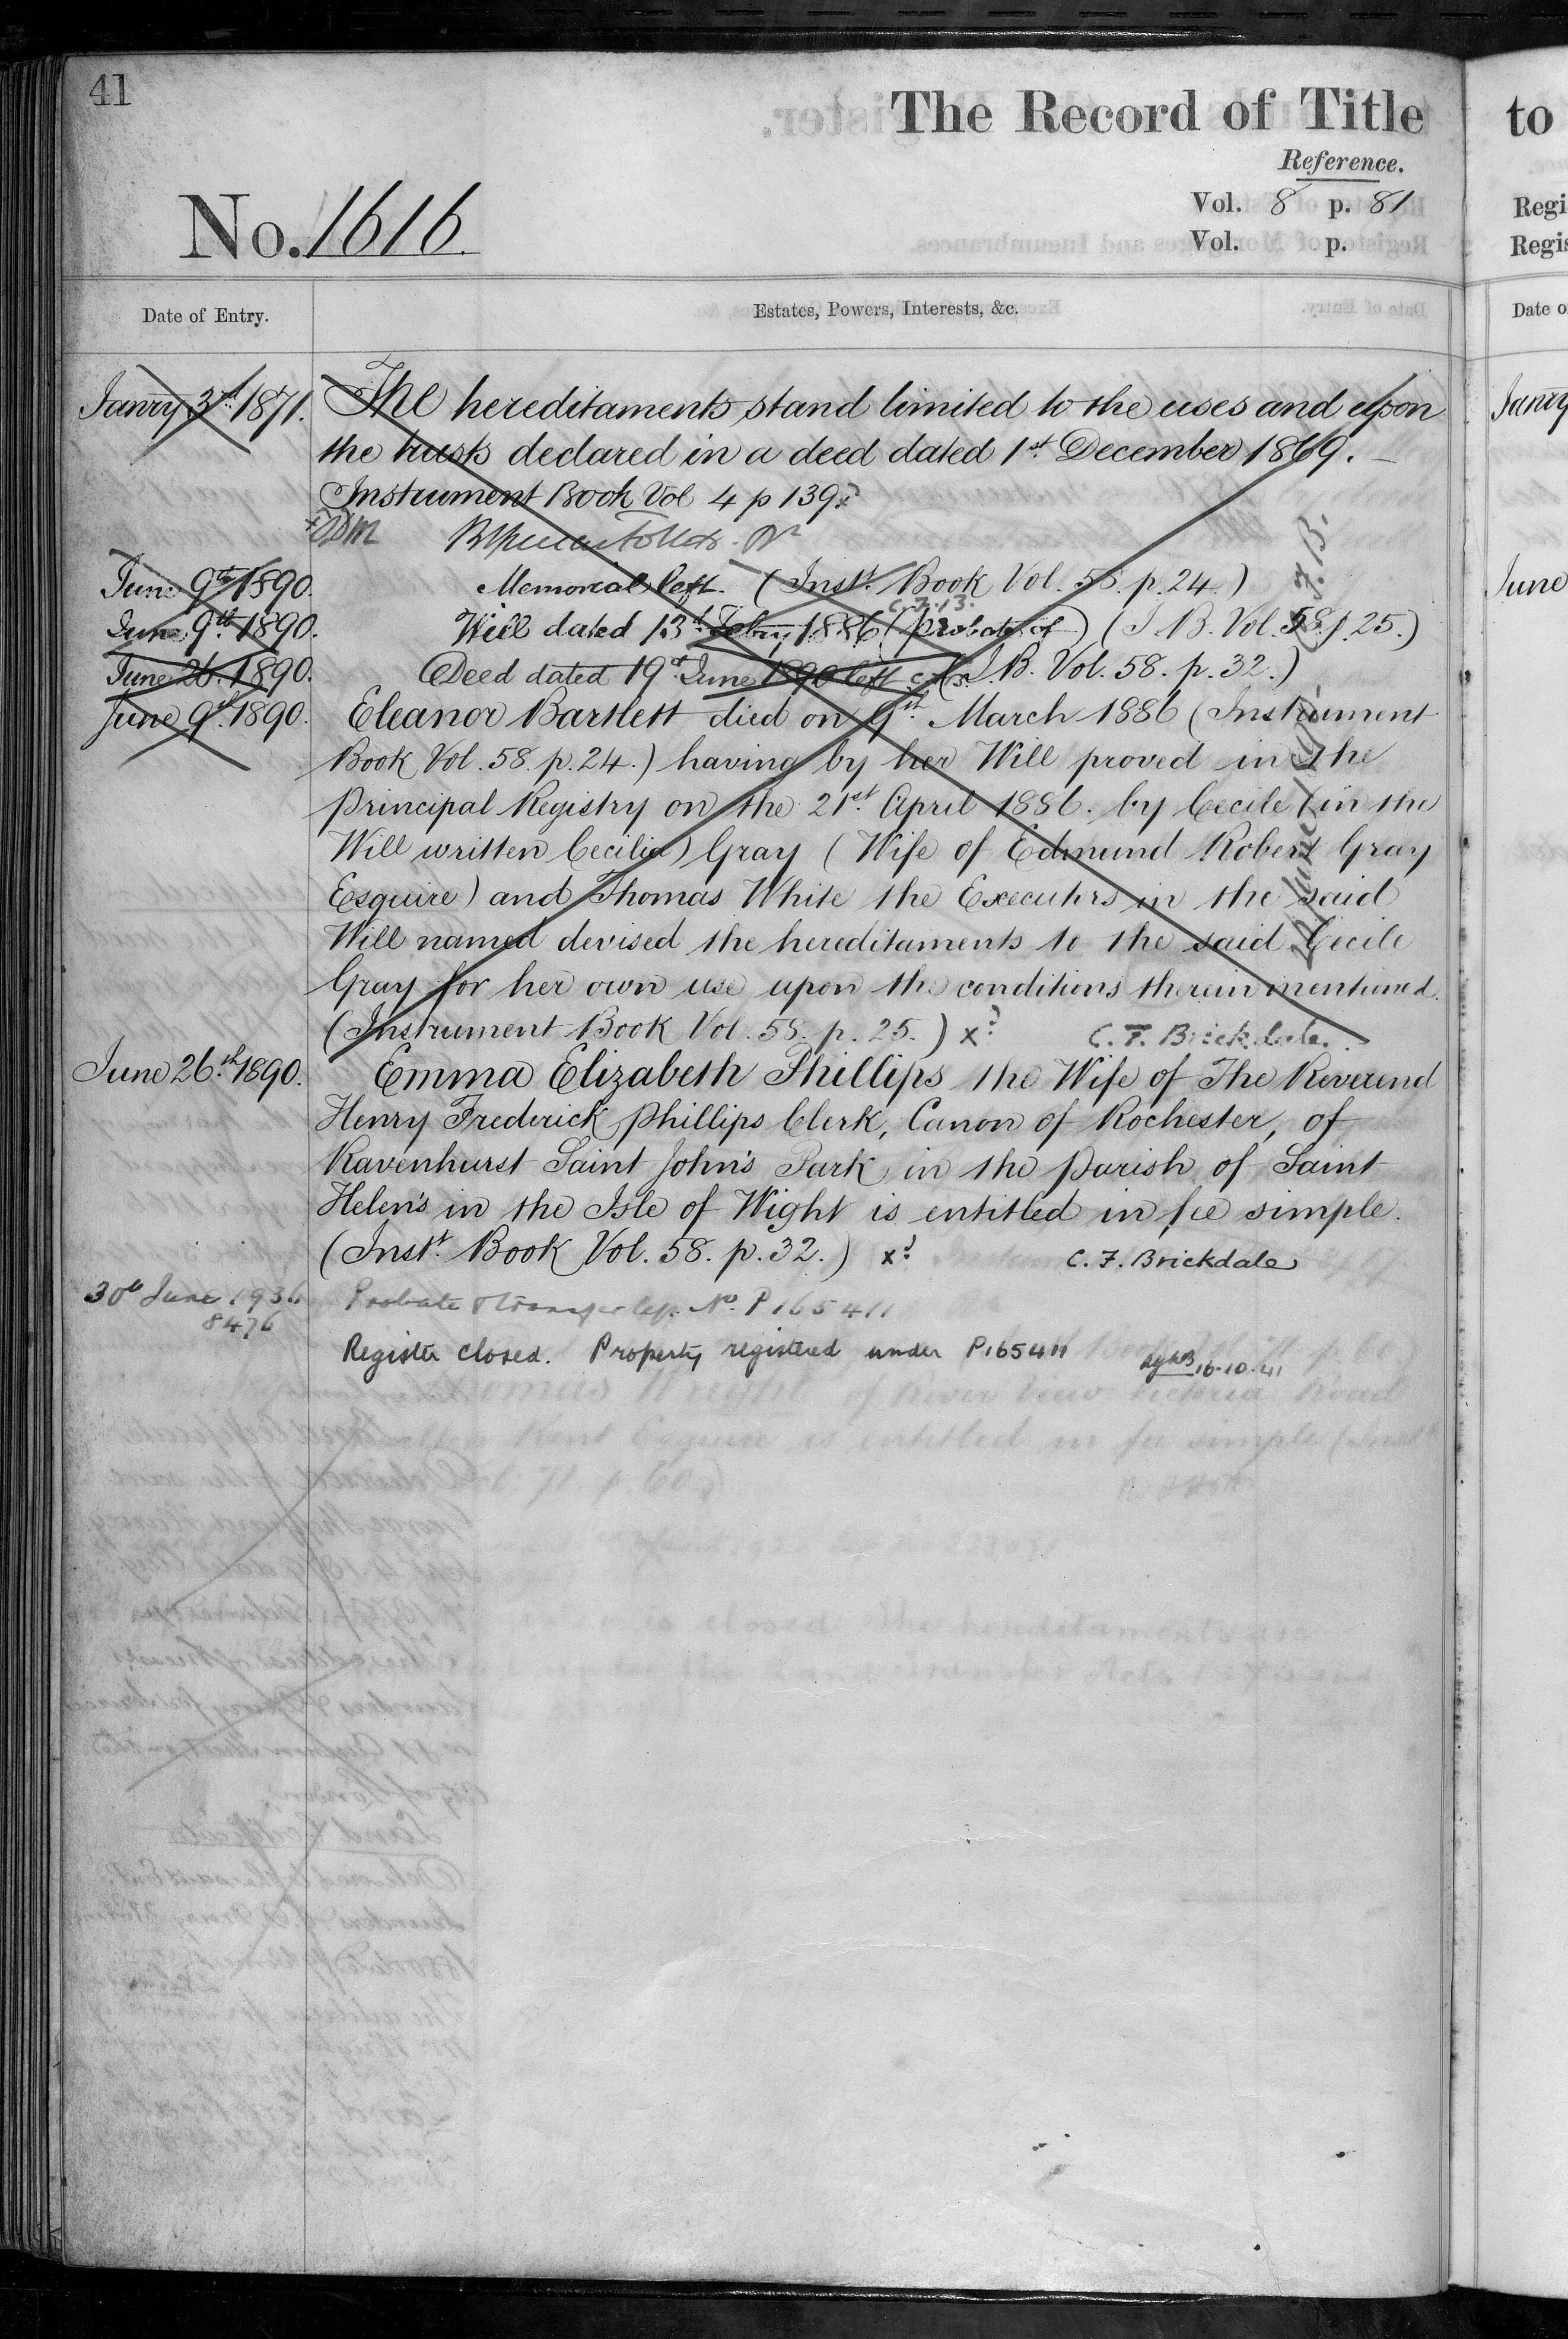 41
The Record of Title
to
Reference.
Vol. 8 p. 81
Regi
No. 1616.
Vol. p.
Regis
Date of Entry.
Estates, Powers, Interests, &c.
Date o
Janry 3rd 1871.
The hereditaments stand limited to the uses and upon
Janry
the trusts declared in a deed dated 1st December 1869.
Instrument Book Vol 4 p 139
June 9th 1890.
Memorial left. (Inst. Book Vol. 58. p. 24.)
June
June 9th 1890.
Will dated 13th Febry 1886 (Probate of) (I. B. Vol. 58. p. 25.)
C.F.B.
June 26. 1890.
Deed dated 19th June 1890 left C.F.B. (I. B. Vol. 58. p. 32.)
June 9th 1890.
Eleanor Bartlett died on 9th March 1886 (Instrument
Book Vol. 58. p. 24.) having by her Will proved in the
Principal Registry on the 21st April 1886. by Cecile (in the
Will written Cecilia) Gray (Wife of Edmund Robert Gray
Esquire) and Thomas White the Executors in the said
Will named devised the hereditaments to the said Cecile
Gray for her own use upon the conditions therein mentioned.
(Instrument Book Vol. 58. p. 25.) x
C. F. Brickdale.
June 26th 1890.
Emma Elizabeth Phillips the Wife of The Reverend
Henry Frederick Phillips Clerk, Canon of Rochester, of
Ravenhurst Saint John's Park in the Parish of Saint
Helen's in the Isle of Wight is entitled in fee simple.
(Inst. Book Vol. 58. p. 32.) x
C. F. Brickdale
30th June 1936
8476
Probate & transfer No. P165411
Register closed. Property registered under P165411
16.10.41